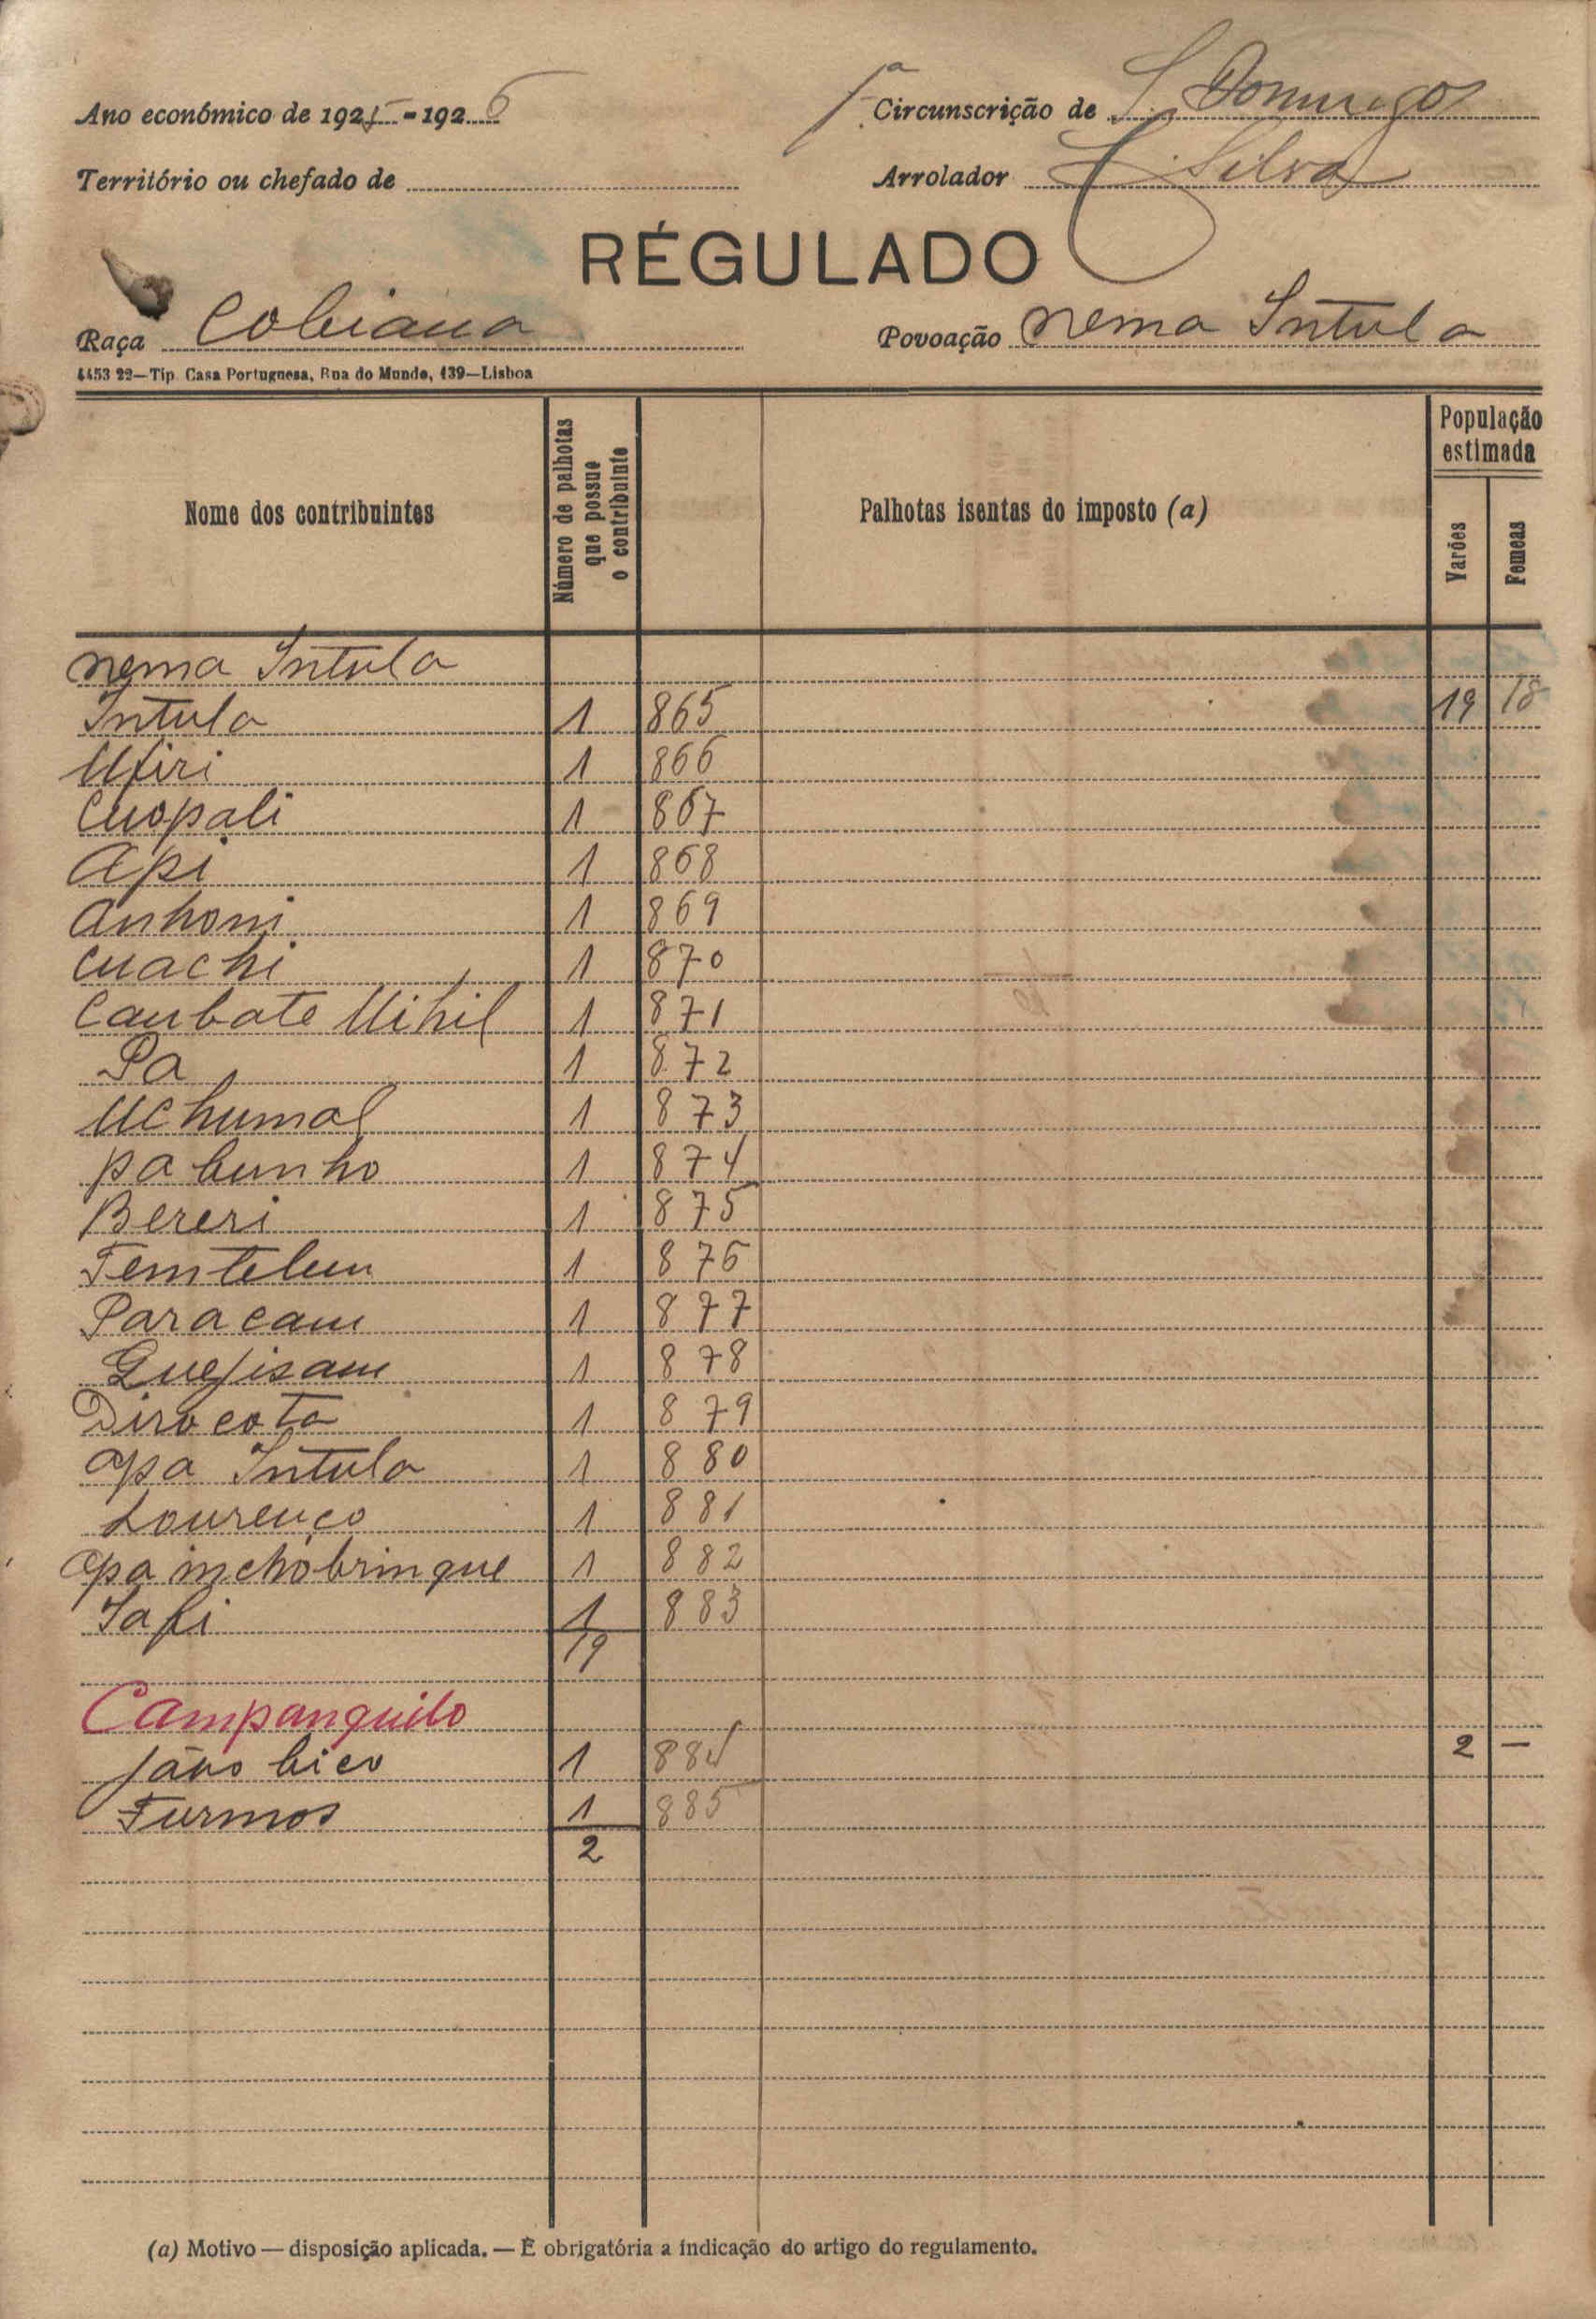 Ano económico de 1925-1926
1ª Circunscrição de S. Domingos
Território ou chefado de
Arrolador C. Silva
RÉGULADO
Raça Cobiana
Povoação nema Intula
4453 22—Tip. Casa Portuguesa, Rua do Mundo, 139—Lisboa
Nome dos contribuintes
Número de palhotas que possue o contribuinte
Palhotas isentas do imposto (a)
População estimada
Varões
Femeas
nema Intula
Intula 1 865 19 18
Ufiri 1 866
Cuopali 1 867
Api 1 868
Anhoni 1 869
Cuachi 1 870
Caubate Uihil 1 871
Pa 1 872
Uchumal 1 873
pa bunho 1 874
Bereri 1 875
1 876
Paracam 1 877
Quefisam 1 878
Dirocota 1 879
Apa Intula 1 880
Lourenço 1 881
Apa inchobrinque 1 882
Safi 1 883
19
Campanquilo
Jáno bico 1 884 2 —
Furmos 1 885
2
(a) Motivo — disposição aplicada. — É obrigatória a indicação do artigo do regulamento.